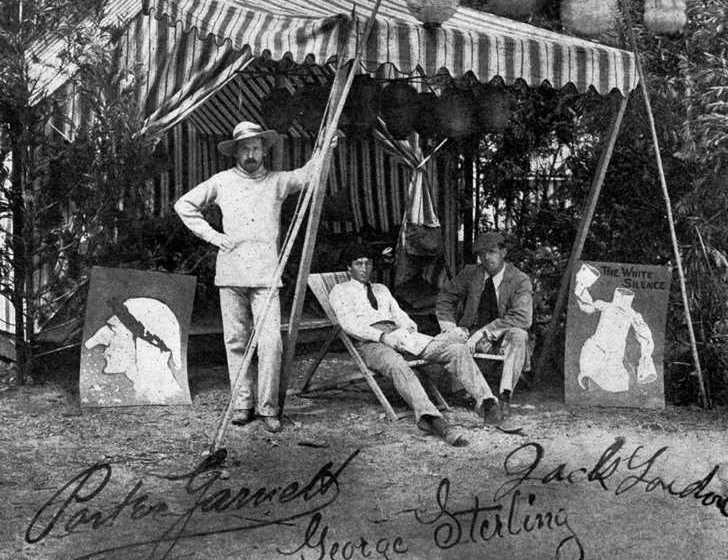 THE WHITE
SILENCE
Porter Garnett
George Sterling
Jack London